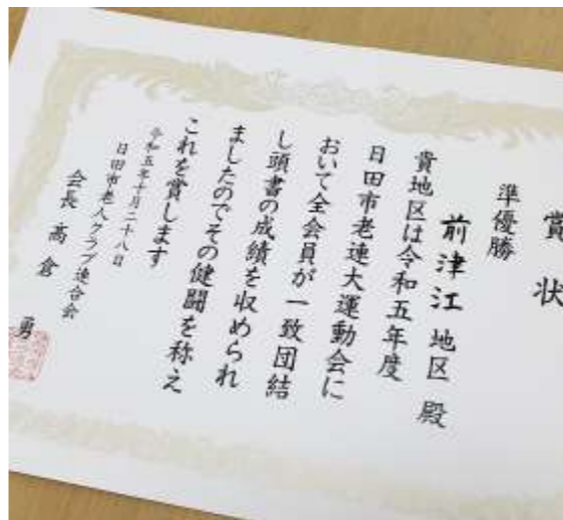 賞状
準優勝
前津江地区 殿
貴地区は令和五年度
日田市老連大運動会に
おいて全会員が一致団結
し頭書の成績を収められ
ましたのでその健闘を称え
これを賞します
令和五年十月二十八日
日田市老人クラブ連合会
会長 高倉 勇